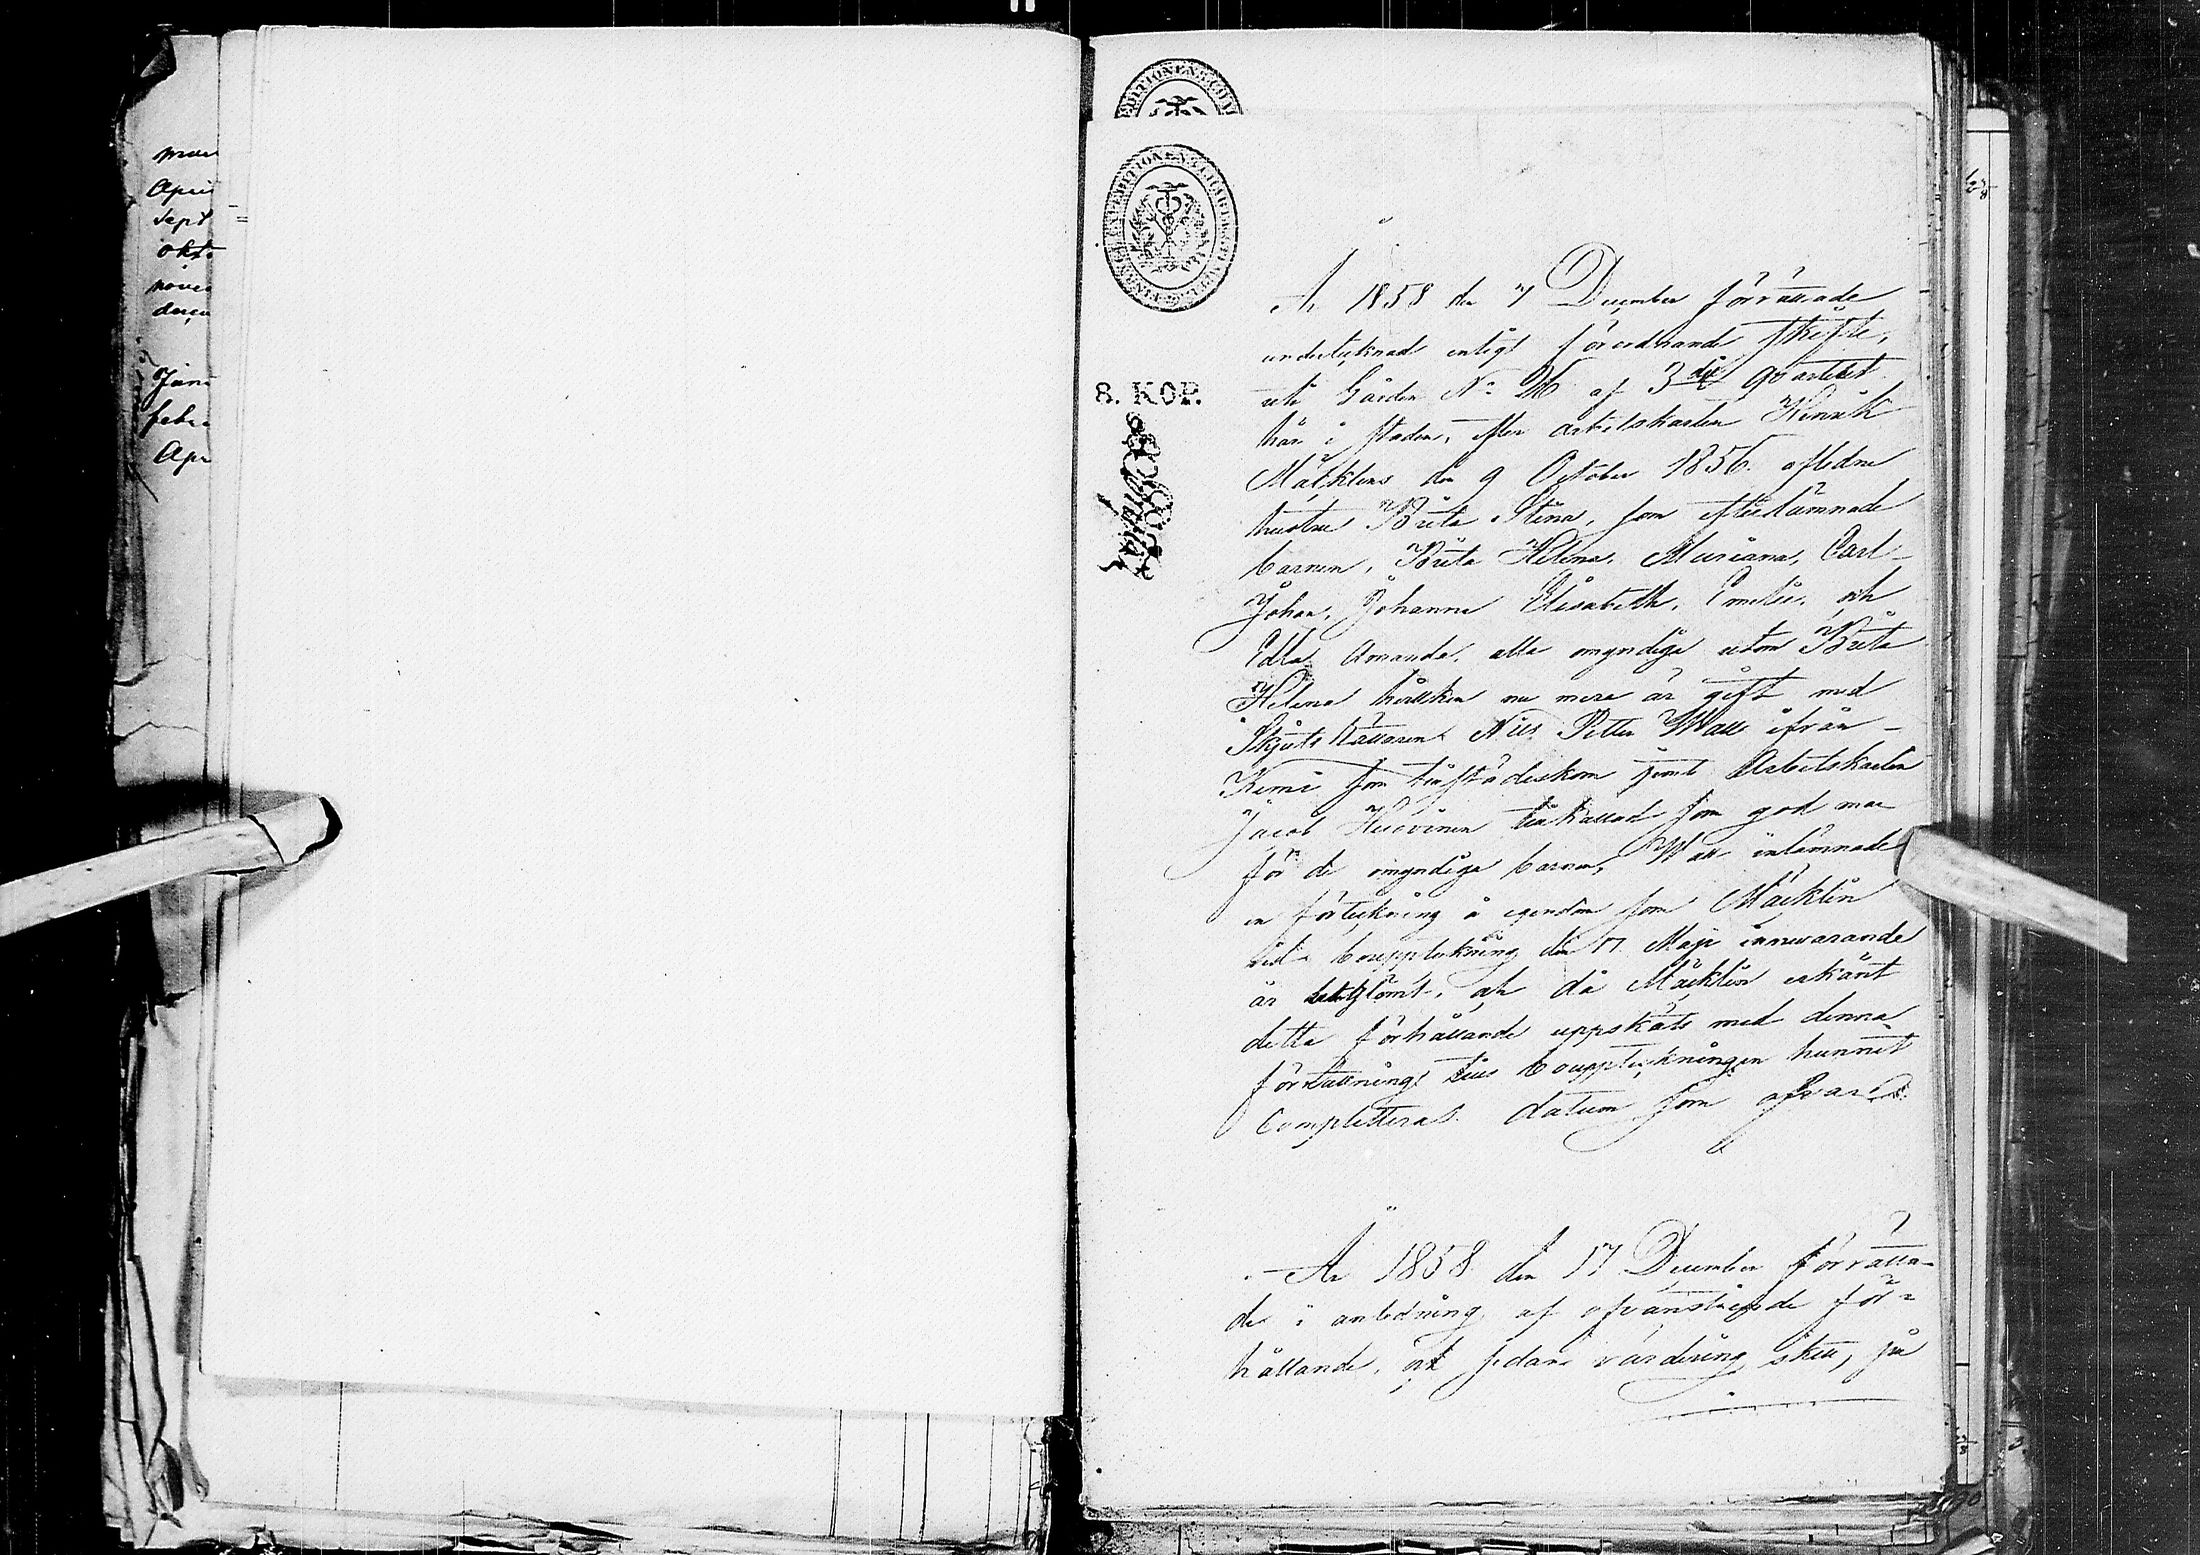 År 1858 den 7 December förrättade
undertecknad enligt förordnande skifte,
uti Gården No 26 af 3dje qvarteret
här i staden, efter arbetskarlen Henrik
Mäcklins den 9 October 1856 aflidne
hustru Brita Stina, som efterlämnade
barnen, Brita Helena, Mariana, Carl
Johan, Johanna Elisabeth, Emelie, och
Edla Amanda, alla omyndiga utom Brita
Helena hvilken nu mera är gift med
Skjutshållaren Nils Petter Wall ifrån
Kemi som tillstädeskom jemte Arbetskarlen
Jacob tillkallad som god man
för de omyndiga barnen, Wall inlämnade
en förteckning å egendom som Mäcklin
vid bouppteckning den 17 Maji innevarande
år och då Mäcklin erkänt
detta förhållande uppsköts med denna
förrättning tills bouppteckningen hunnit
Completteras. datum som ofvan.
År 1858 den 17 December förrätta-
des i anledning af ofvanstående för-
hållande, och sedan värdering skett, på
8. KOP.
Apri
Sept
okt.
nove
dece
Janu
febr
Apr